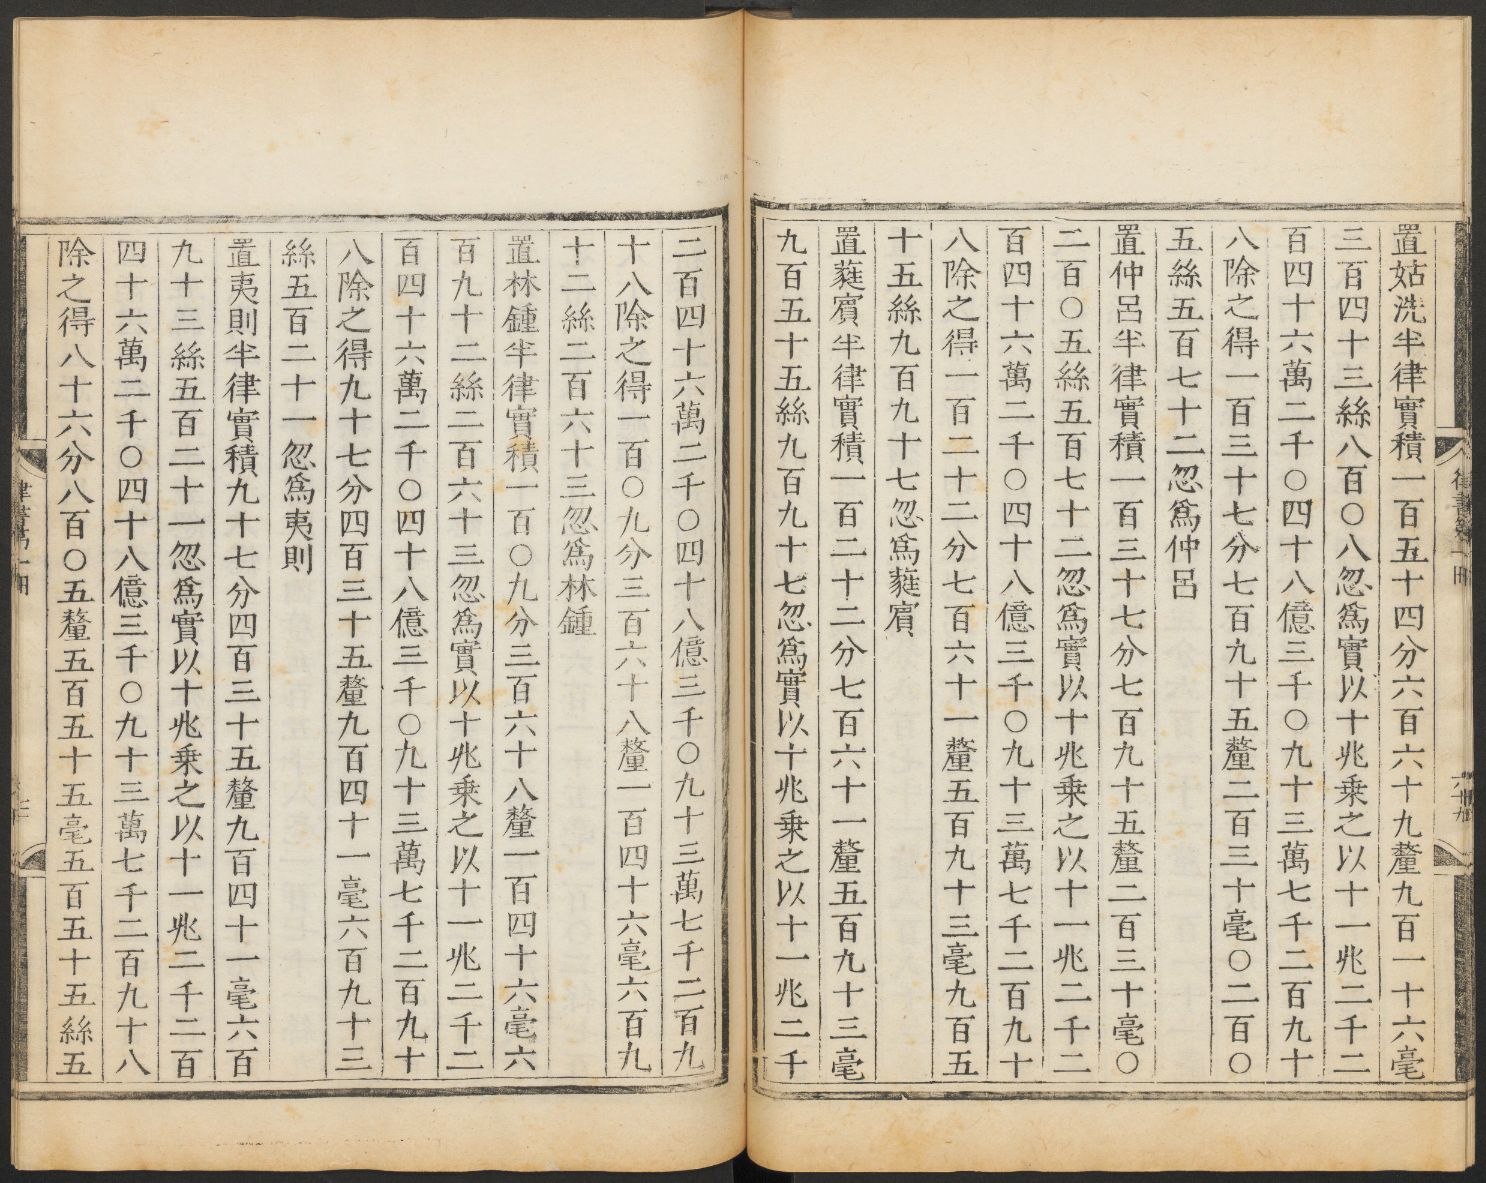 置姑洗半律實積一百五十四分六百六十九釐九百一十六毫
三百四十三絲八百〇八忽爲實以十兆乗之以十一兆二千二
百四十六萬二千〇四十八億三千〇九十三萬七千二百九十
八除之得一百三十七分七百九十五釐二百三十毫〇二百〇
五絲五百七十二忽爲仲呂
置仲呂半律實積一百三十七分七百九十五釐二百三十毫〇
二百〇五絲五百七十二忽爲實以十兆乗之以十一兆二千二
百四十六萬二千〇四十八億三千〇九十三萬七千二百九十
八除之得一百二十二分七百六十一釐五百九十三毫九百五
十五絲九百九十七忽爲蕤賔
置蕤賔半律實積一百二十二分七百六十一釐五百九十三毫
九百五十五絲九百九十七忽爲實以十兆乗之以十一兆二千
二百四十六萬二千〇四十八億三千〇九十三萬七千二百九
十八除之得一百〇九分三百六十八釐一百四十六毫六百九
十二絲二百六十三忽爲林鍾
置林鍾半律實積一百〇九分三百六十八釐一百四十六毫六
百九十二絲二百六十三忽爲實以十兆乗之以十一兆二千二
百四十六萬二千〇四十八億三千〇九十三萬七千二百九十
八除之得九十七分四百三十五釐九百四十一毫六百九十三
絲五百二十一忽爲夷則
置夷則半律實積九十七分四百三十五釐九百四十一毫六百
九十三絲五百二十一忽爲實以十兆乗之以十一兆二千二百
四十六萬二千〇四十八億三千〇九十三萬七千二百九十八
除之得八十六分八百〇五釐五百五十五毫五百五十五絲五